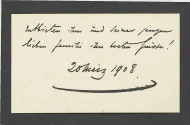 entbieten Ihnen und Ihrer jungen
lieben Familie die besten Grüsse!
20 März 1908